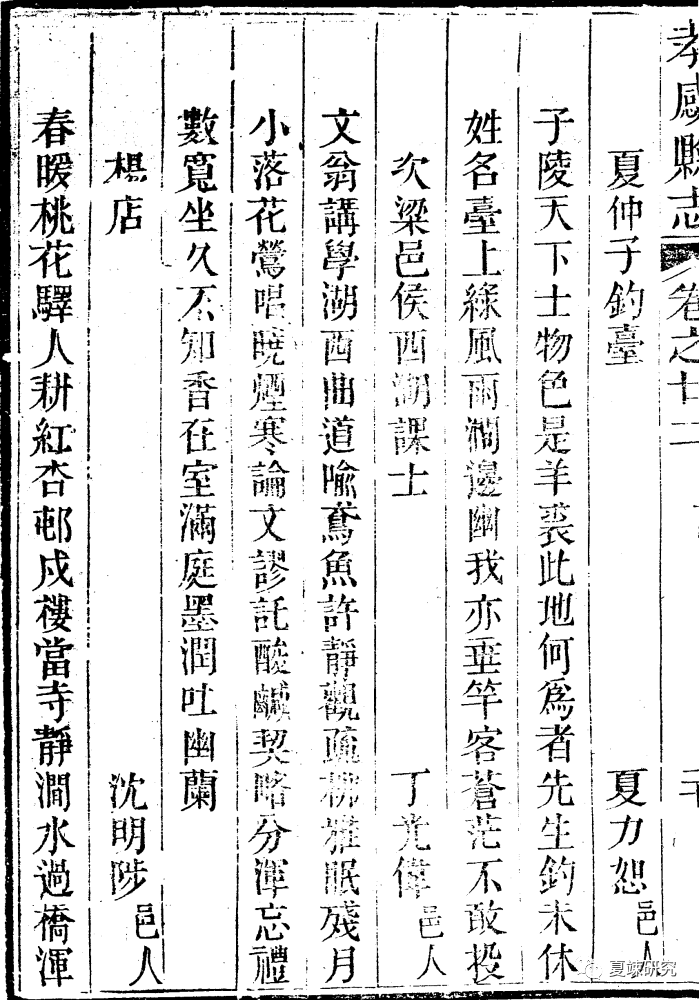 孝感縣志 卷之廿二
夏仲子釣臺 夏力恕 邑人
子陵天下士物色是羊裘此地何為者先生釣未休
姓名臺上綠風雨澗邊幽我亦垂竿客蒼茫不敢投
次梁邑侯西湖課士 丁光偉 邑人
文翁講學湖西曲道喻鳶魚許靜觀疏柳雅眠殘月
小落花鶯唱曉煙寒論文謬託酸鹹契略分渾忘禮
數寬坐久不知香在室滿庭墨潤吐幽蘭
楊店 沈明陟 邑人
春暖桃花驛人耕紅杏邨戍樓當寺靜澗水過橋渾
夏竦研究